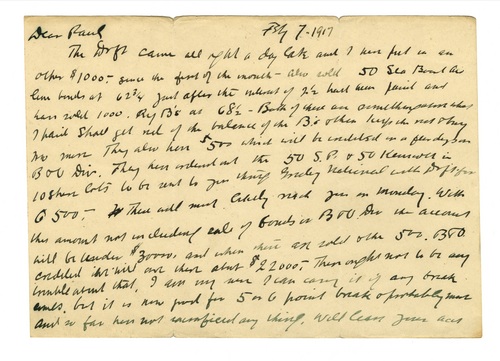 Dear Paul Feby 7-1917
The Drft came all right a day late and I have put in an
other $1000.- since the first of the month - also sold 50 Sea Board Air
Line bonds at 62¾ just after the interest of 2½ had been paid and
have sold 1000. Rej B's at 68½ - Both of these are something more than
I paid Shall get rid of the balance of the B's other
no more. They also have $500 which will be credited in a few days on
B O O Div. They have ordered out the 50 S.P. & 50 Kennecott in
10 Share lots to be sent to you through National with Drft for
6500.- There will most likely reach you on Monday. With
this amount not including sale of bonds or B O O Div the account
will be under $30000. and when these are sold & the 500. B O O
credited will owe them about $22000.- There ought not to be any
trouble about that, I am sure I can carry it if any break
comes. but it is now good for 5 or 6 point break & probably more
and so far have not sacrificed any thing. Will leave your